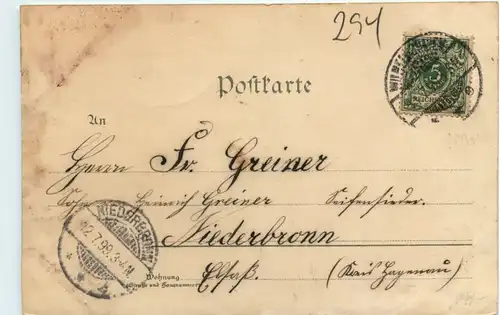 294
5
REICHSPOST
Postkarte
An
Herrn Fr. Greiner
Sohn Heinrich Greiner Seifensieder.
Niederbronn
NIEDERBRONN
12.7.98.3-4N
Wohnung
(Straße und Hausnummer)
Elsaß. (Kreis Hagenau)